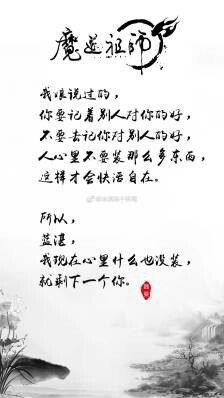 魔道祖师
我娘说过的，
你要记着别人对你的好，
不要去记你对别人的好，
人心里不要装那么多东西，
这样才会快活自在。
所以，
蓝湛，
我现在心里什么也没装，
就剩下一个你。